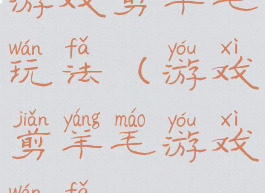 游戏剪羊毛
wán fǎ yóu xì
玩法（游戏
jiǎn yáng máo yóu xì
剪羊毛游戏
wán fǎ